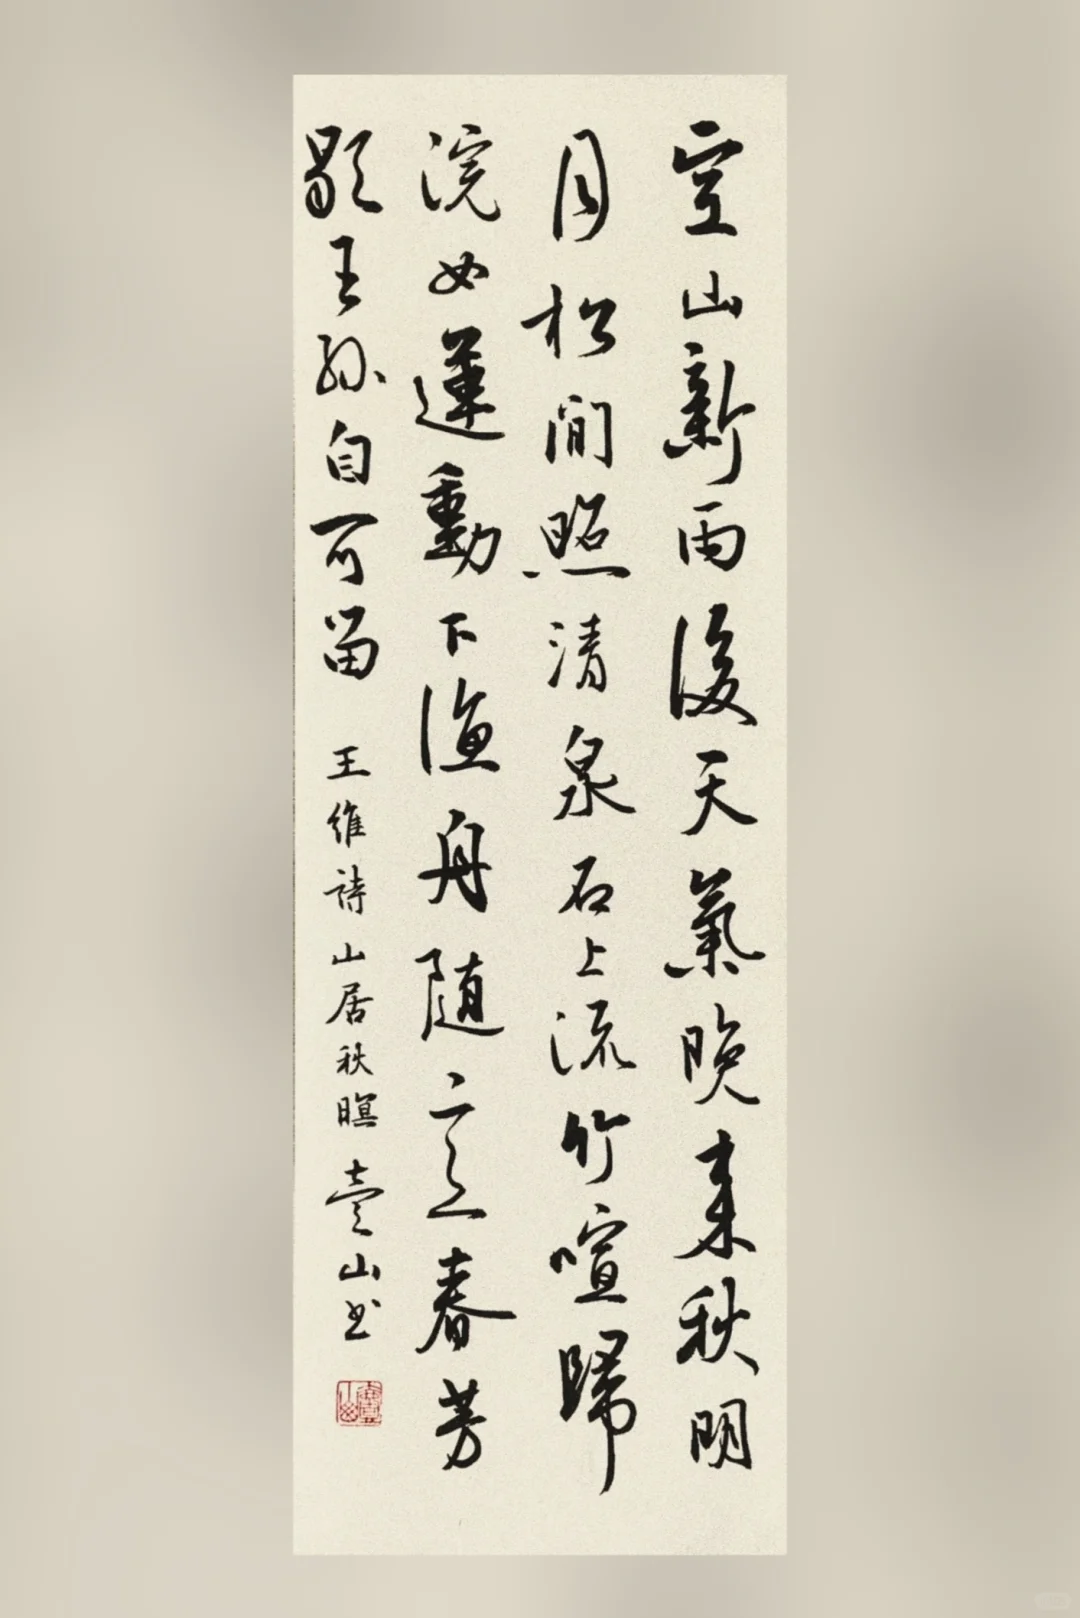 空山新雨後天氣晚来秋明
月松間照清泉石上流竹喧歸
浣女蓮動下漁舟随意春芳
歇王孫自可留 王維詩 山居秋暝 山书